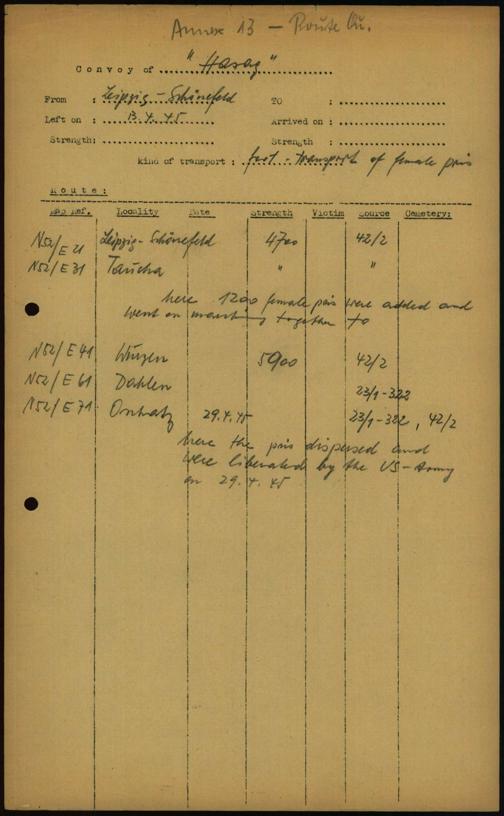 Annex 13 — Route
Convoy of "Hasag"
From : Leipzig - Schönefeld TO :
Left on : 13.4.45 Arrived on :
Strength: Strength :
kind of transport : foot - transport of female pris
Route:
Map Ref. Locality Date Strength Victim Source Cemetery:
N52/E21 Leipzig-Schönefeld 4700 42/2
N52/E31 Taucha " "
here 1200 female pris were added and
went on marching together to
N52/E41 Wurzen 5900 42/2
N52/E61 Dahlen 23/1-322
N52/E71 Oschatz 29.4.45 23/1-322, 42/2
here the pris dispersed and
were liberated by the US-Army
on 29.4.45